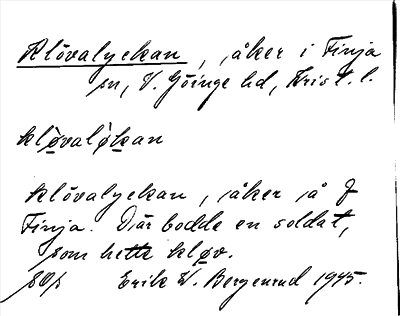 Klövalyckan, åker i Finja
sn, V. Göinge hd, Krist. l.
klø̀valỳkan
Klövalyckan, åker å
Finja. Där bodde en soldat,
som hette kløv.
Erik W. Bergenrud 1945.